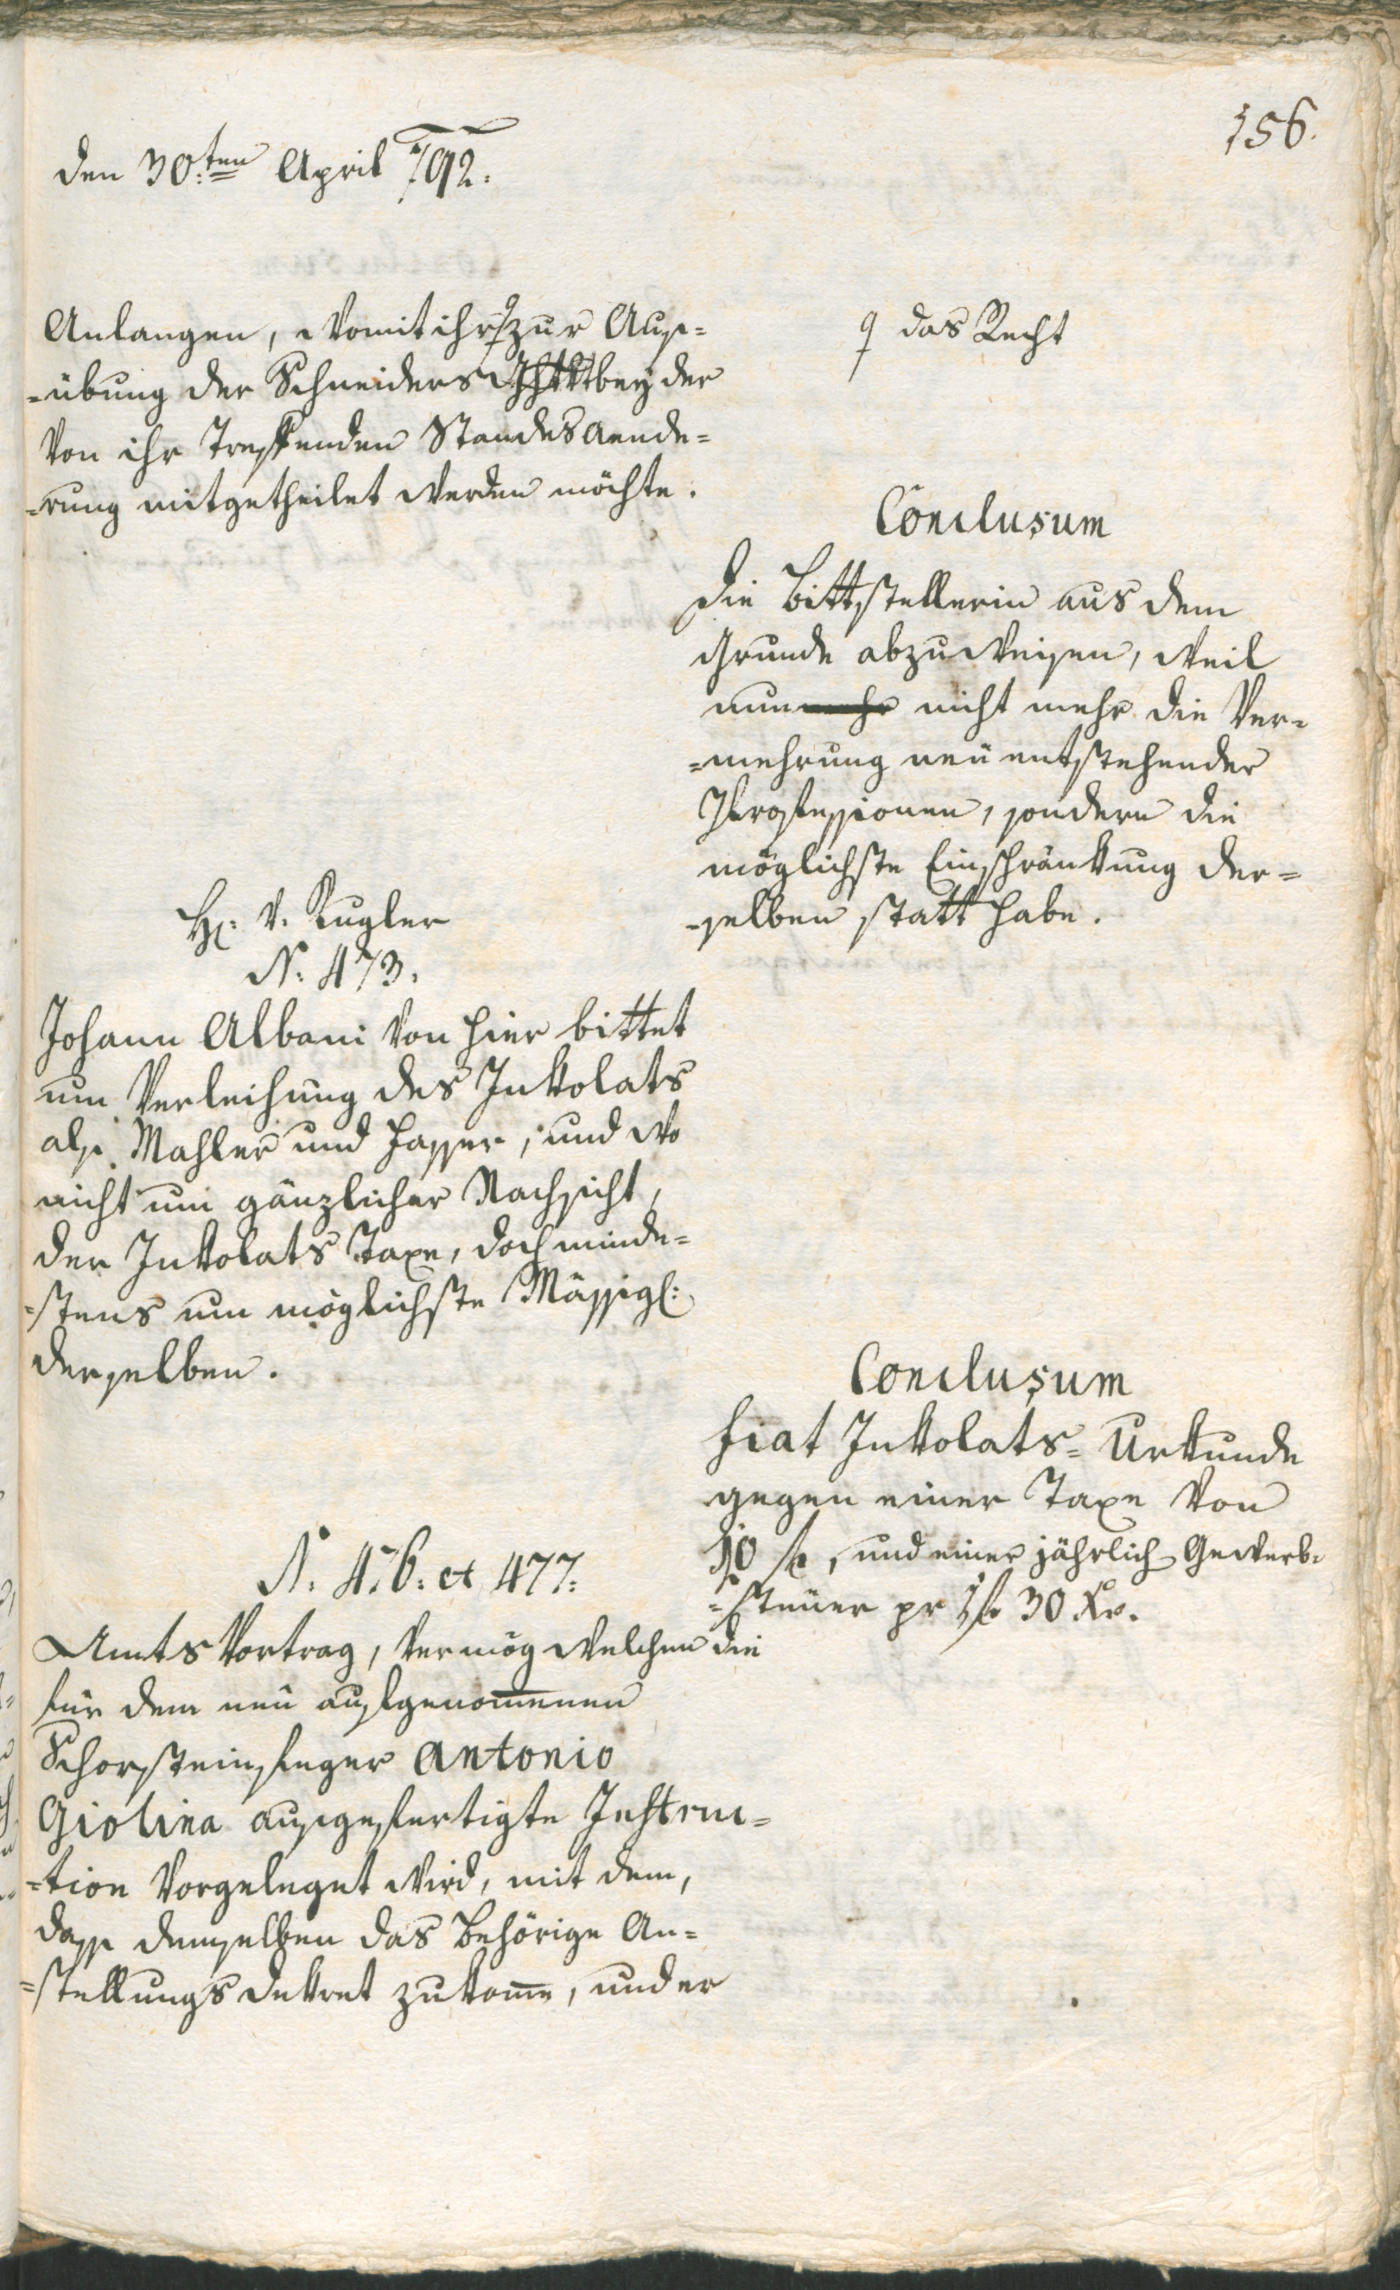 156.
den 30.ten April 792.
Anlangen, womit ihr zur Aus=
=übung der Schneiders bey der
von ihr treffenden Standesaende=
=rung mitgetheilet werden möchte.
das Recht
Conclusum
die Bittstellerin aus dem
Grunde abzuweisen, weil
nunmehr nicht mehr die Ver=
=mehrung neu entstehender
Professionen, sondern die
möglichste Einschränkung der=
=selben statt habe.
H: v. Kugler
N: 473.
Johann Albani von hier bittet
um Verleihung des Inkolats
als Mahler und Fasser, und wo
nicht um gänzlicher Nachsicht,
der Inkolats Taxe, doch minde=
=stens um möglichste Mässig:
derselben.
Conclusum
fiat Inkolats=Urkunde
gegen einer Taxe von
10 f, und einer jährlich Gewerb=
=steuer pr 1 f 30 Xr.
N. 476: et 477:
Amts Vortrag, vermög welchen die
für dem neu aufgenommenen
Schorsteinfeger Antonio
Giolina ausgefertigte Instruc=
=tion vorgeleget wird, mit dem,
dass demselben das behörige An=
=stellungs dekret zukomme, und er